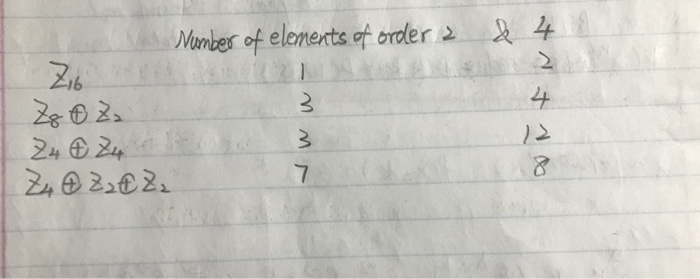 Number of elements of order 2 & 4
Z₁₆ 1 2
Z₈ ⊕ Z₂ 3 4
Z₄ ⊕ Z₄ 3 12
Z₄ ⊕ Z₂ ⊕ Z₂ 7 8